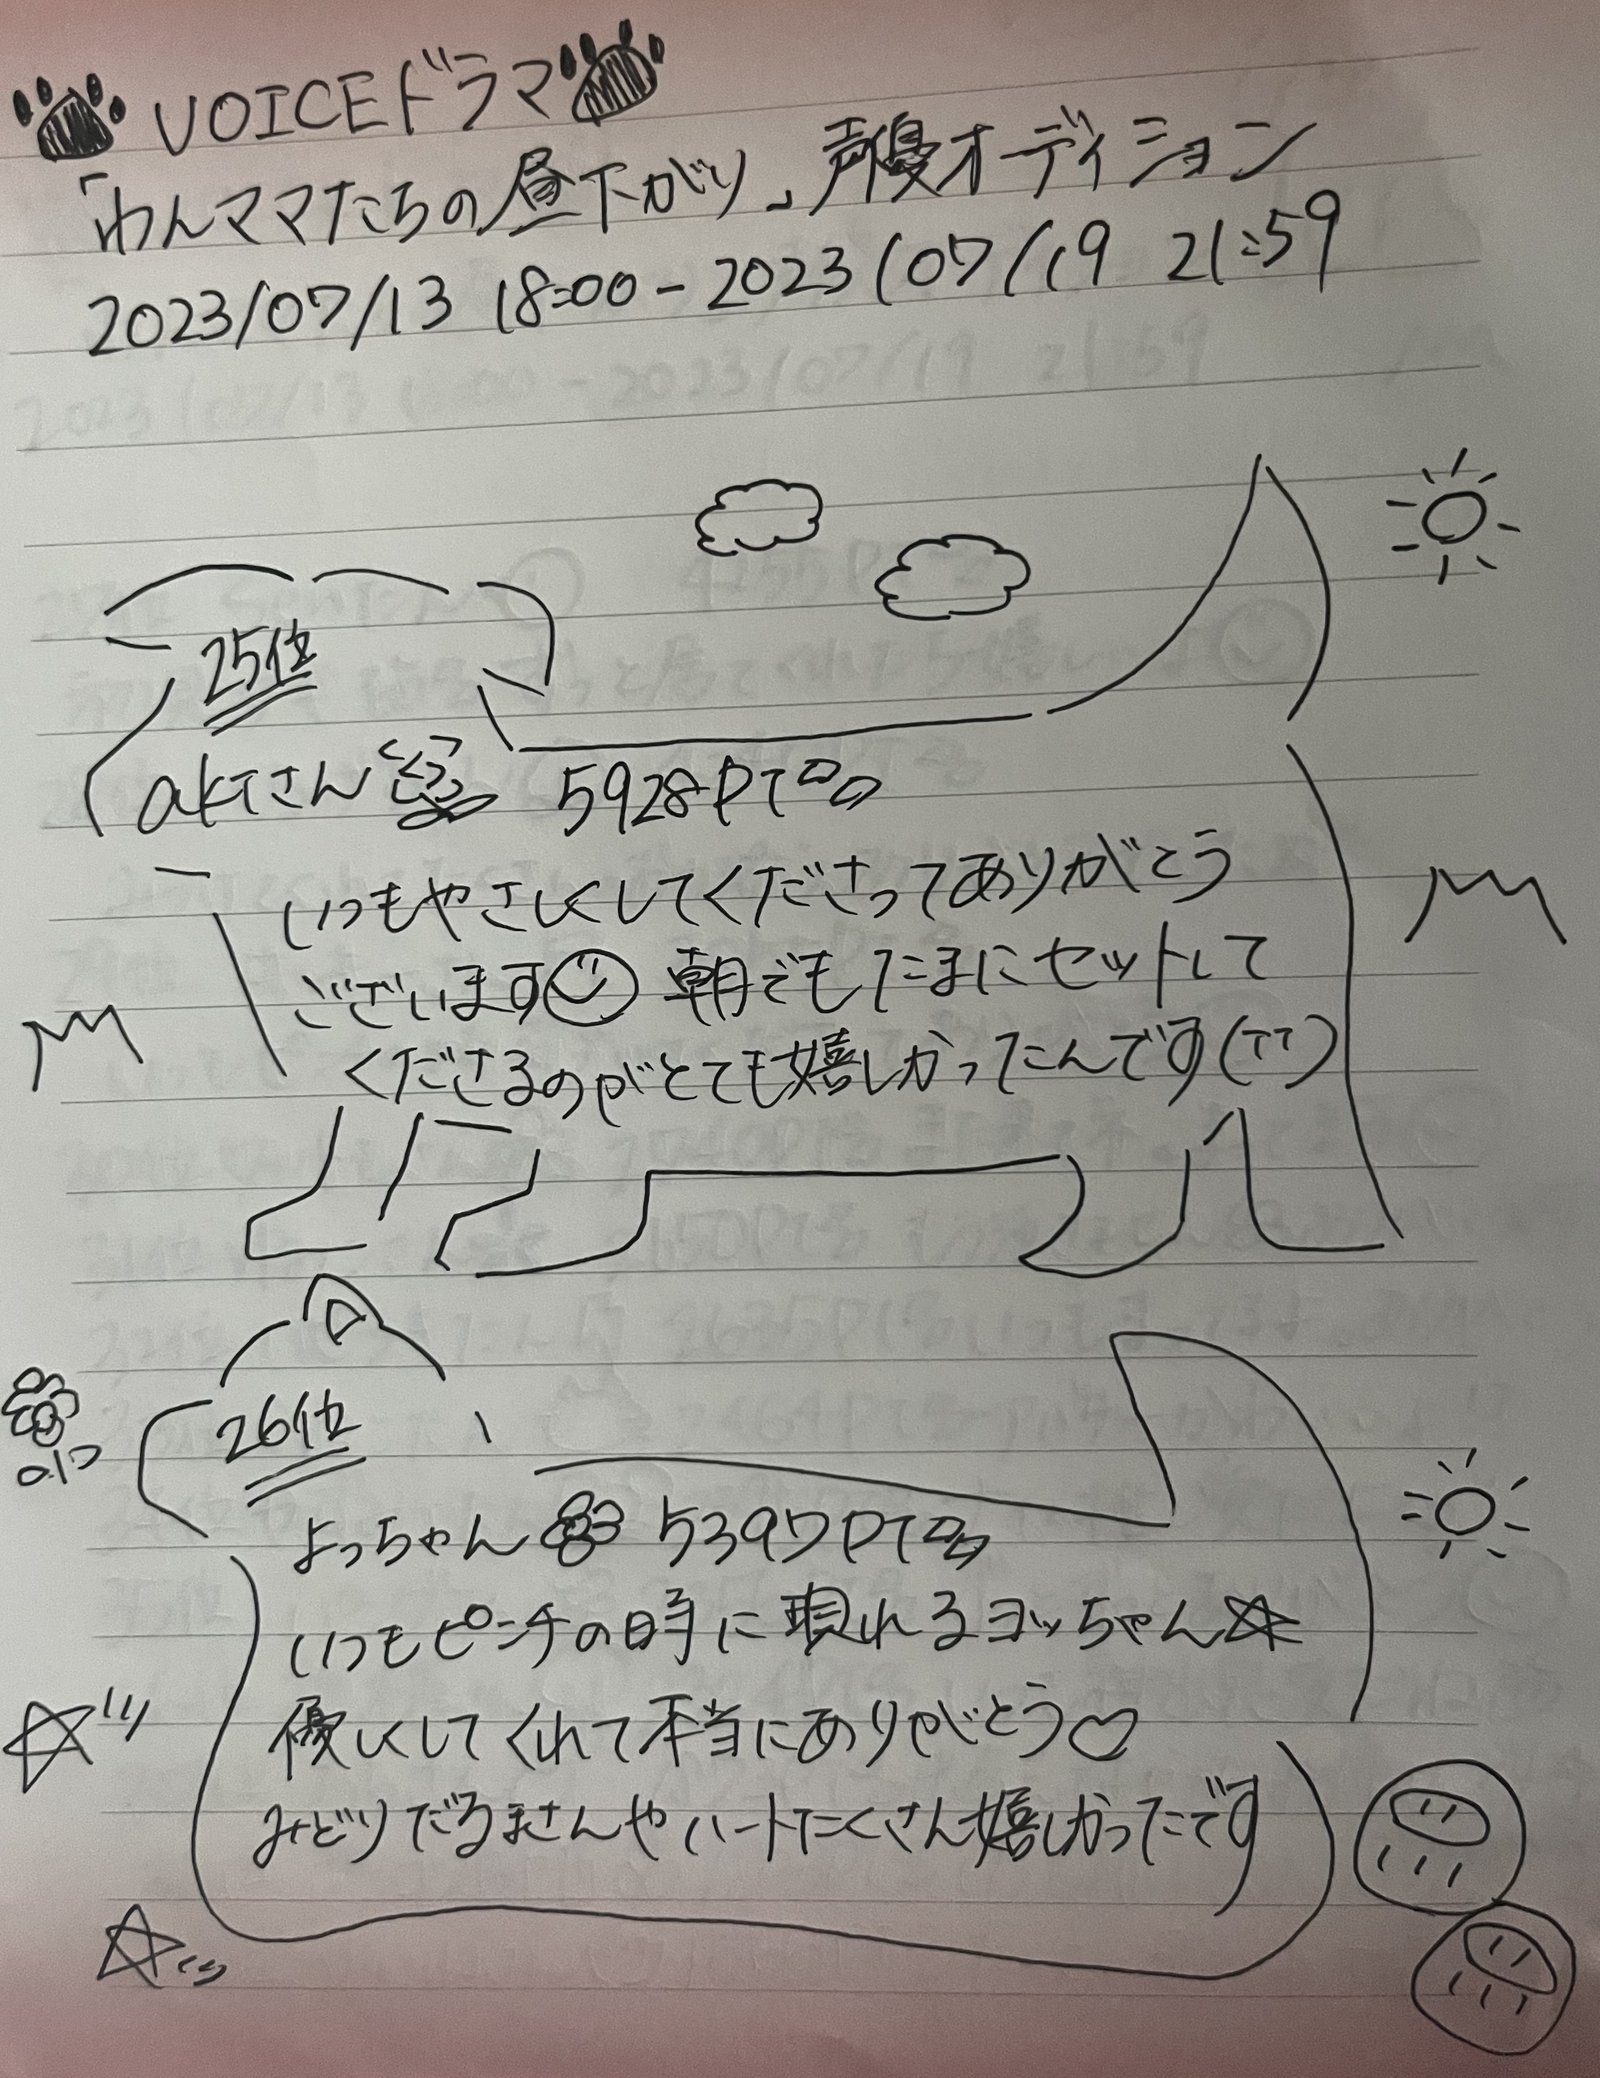 VOICEドラマ
「わんママたちの昼下がり」声優オーディション
2023/07/13 18:00-2023/07/19 21:59
25位
aktさん 5928PT
いつもやさしくしてくださってありがとう
ございます 朝でもたまにセットして
くださるのがとても嬉しかったんです(TT)
26位
よっちゃん 5397PT
いつもピンチの時に現れるヨッちゃん☆
優しくしてくれて本当にありがとう♡
みどりだるまさんやハートたくさん嬉しかったです